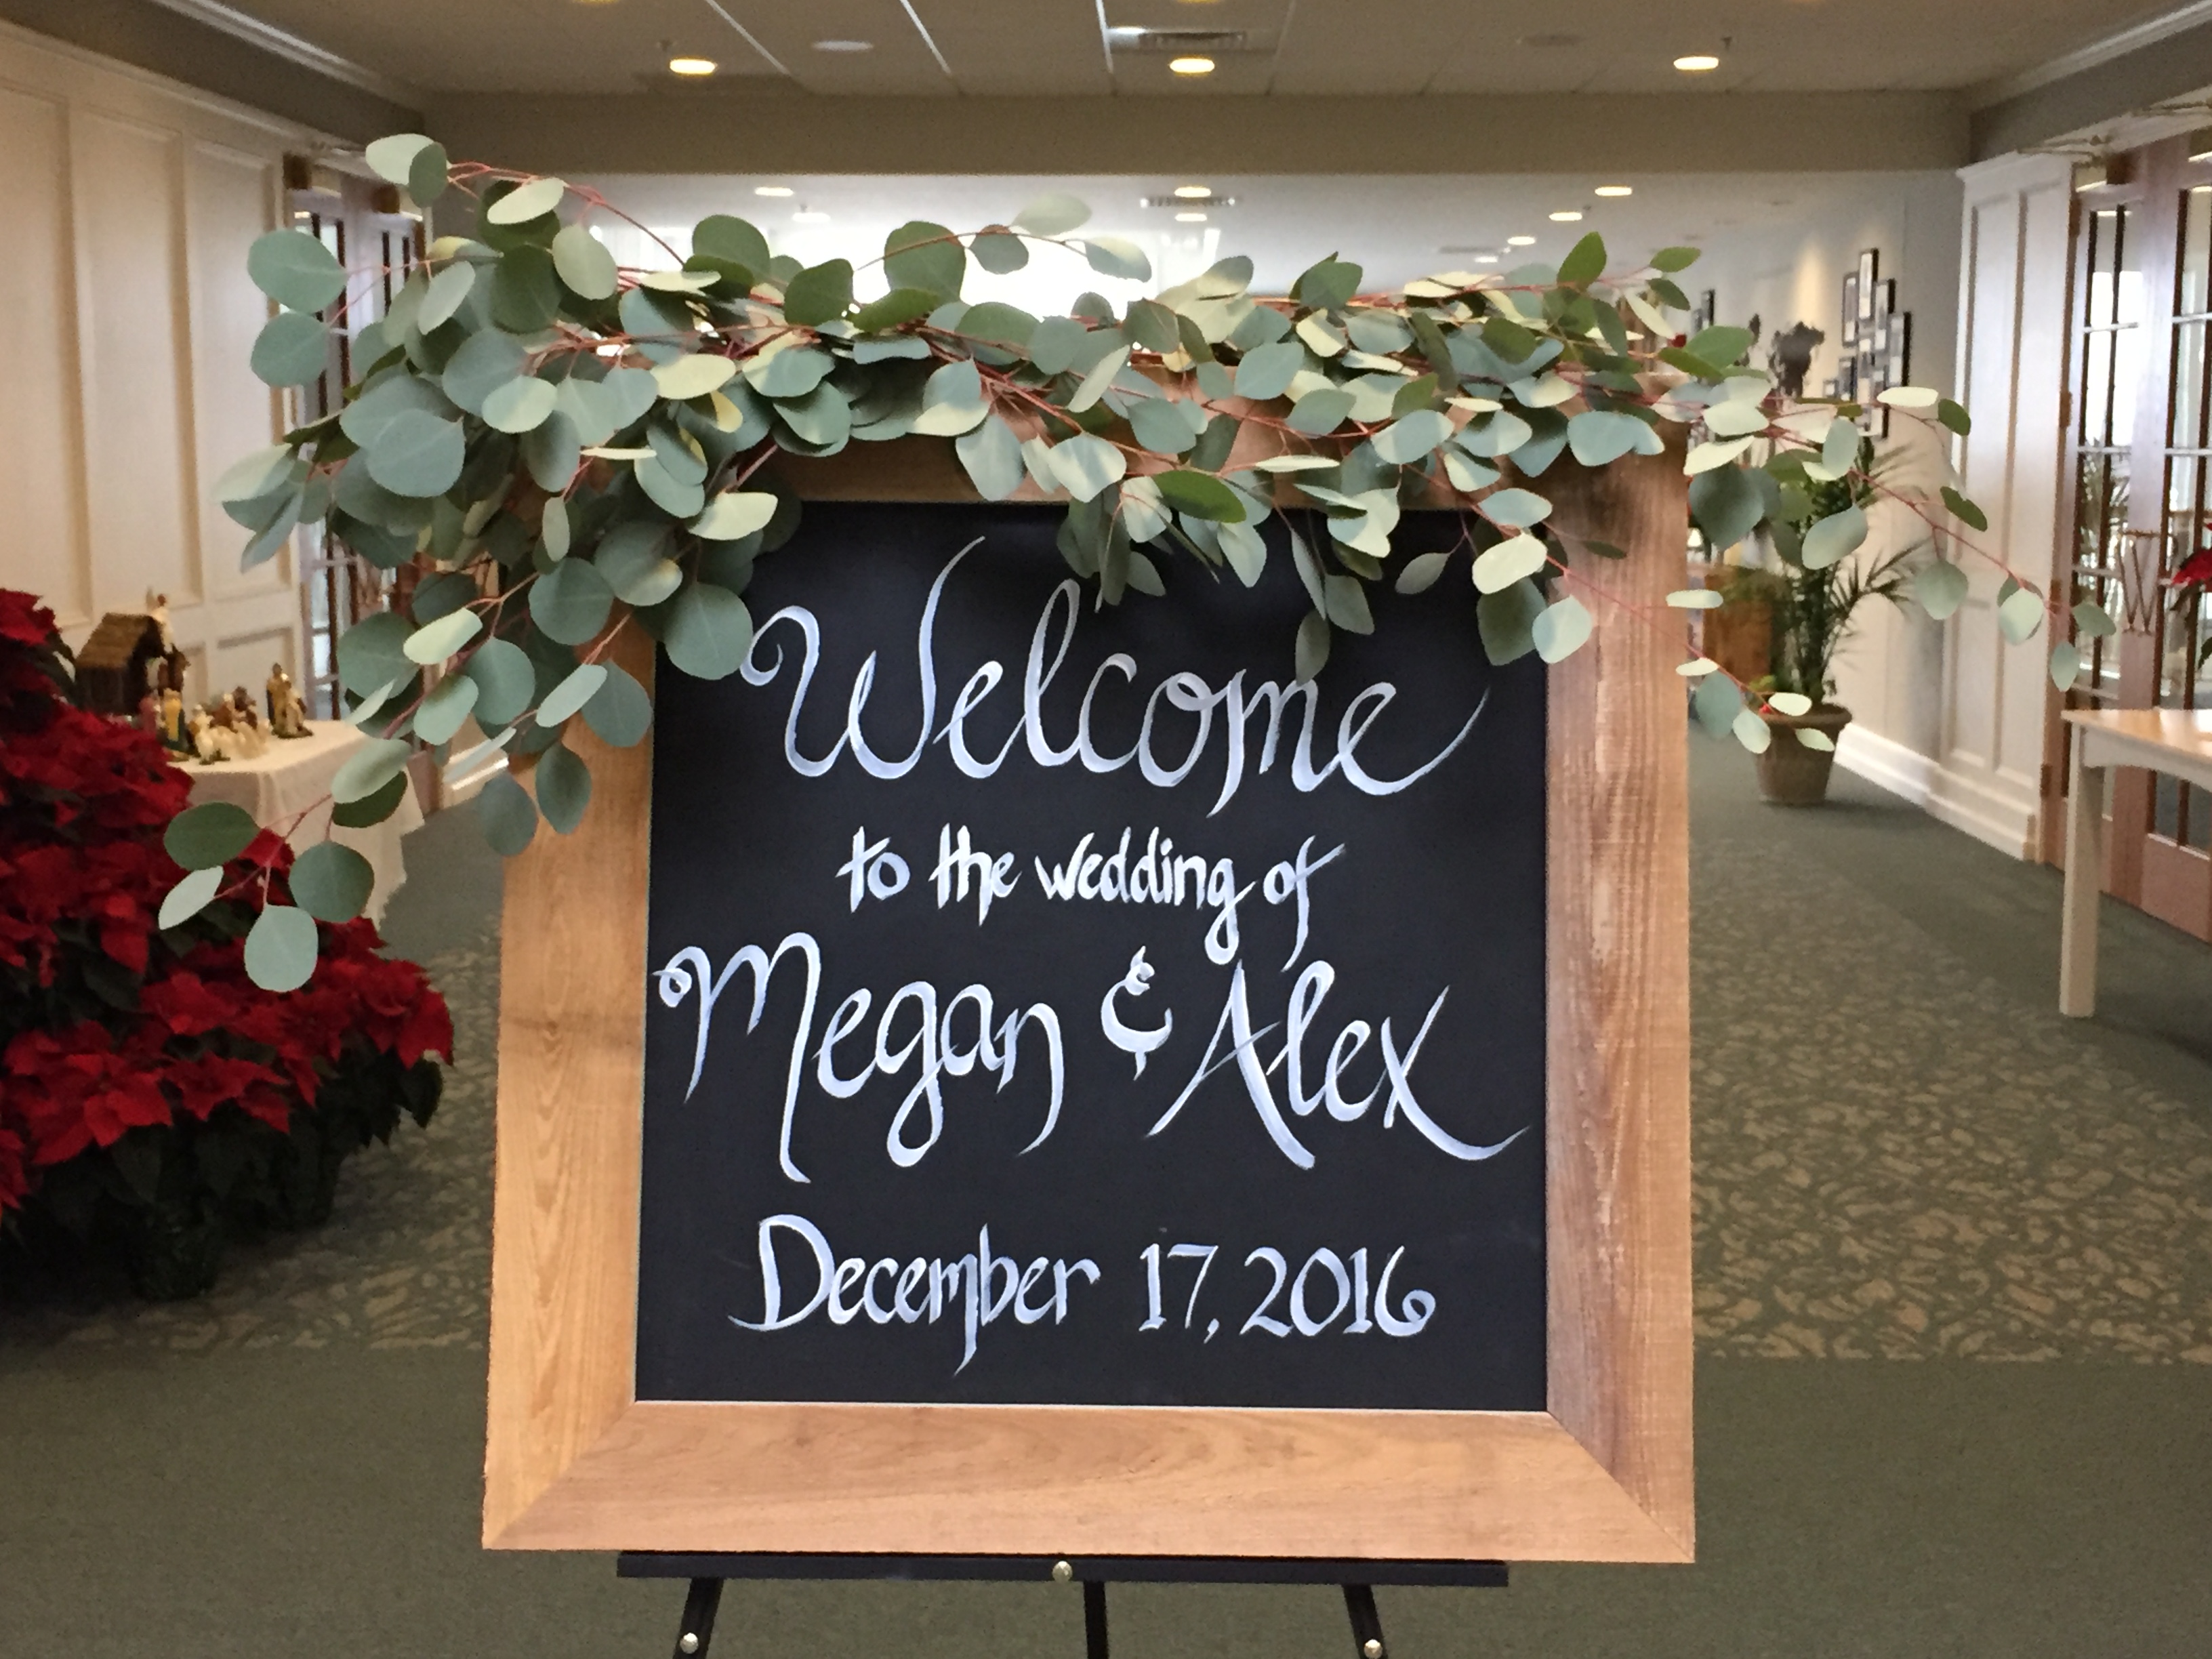 Welcome
to the wedding of
Megan & Alex
December 17, 2016